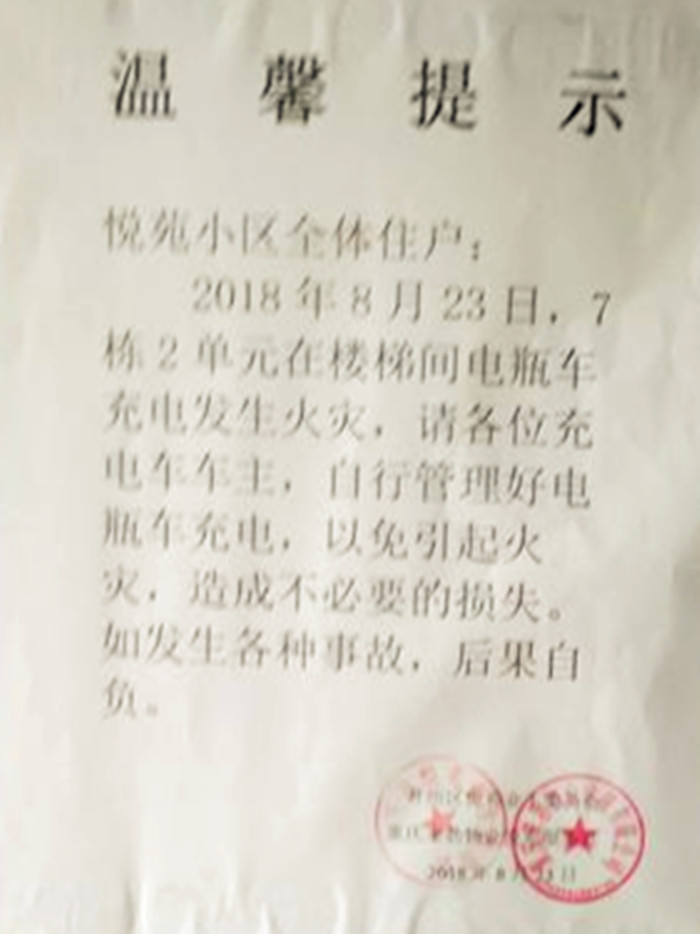 温馨提示
悦苑小区全体住户：
2018年8月23日，7
栋2单元在楼梯间电瓶车
充电发生火灾，请各位充
电车车主，自行管理好电
瓶车充电，以免引起火
灾，造成不必要的损失。
如发生各种事故，后果自
负。
2018年8月23日